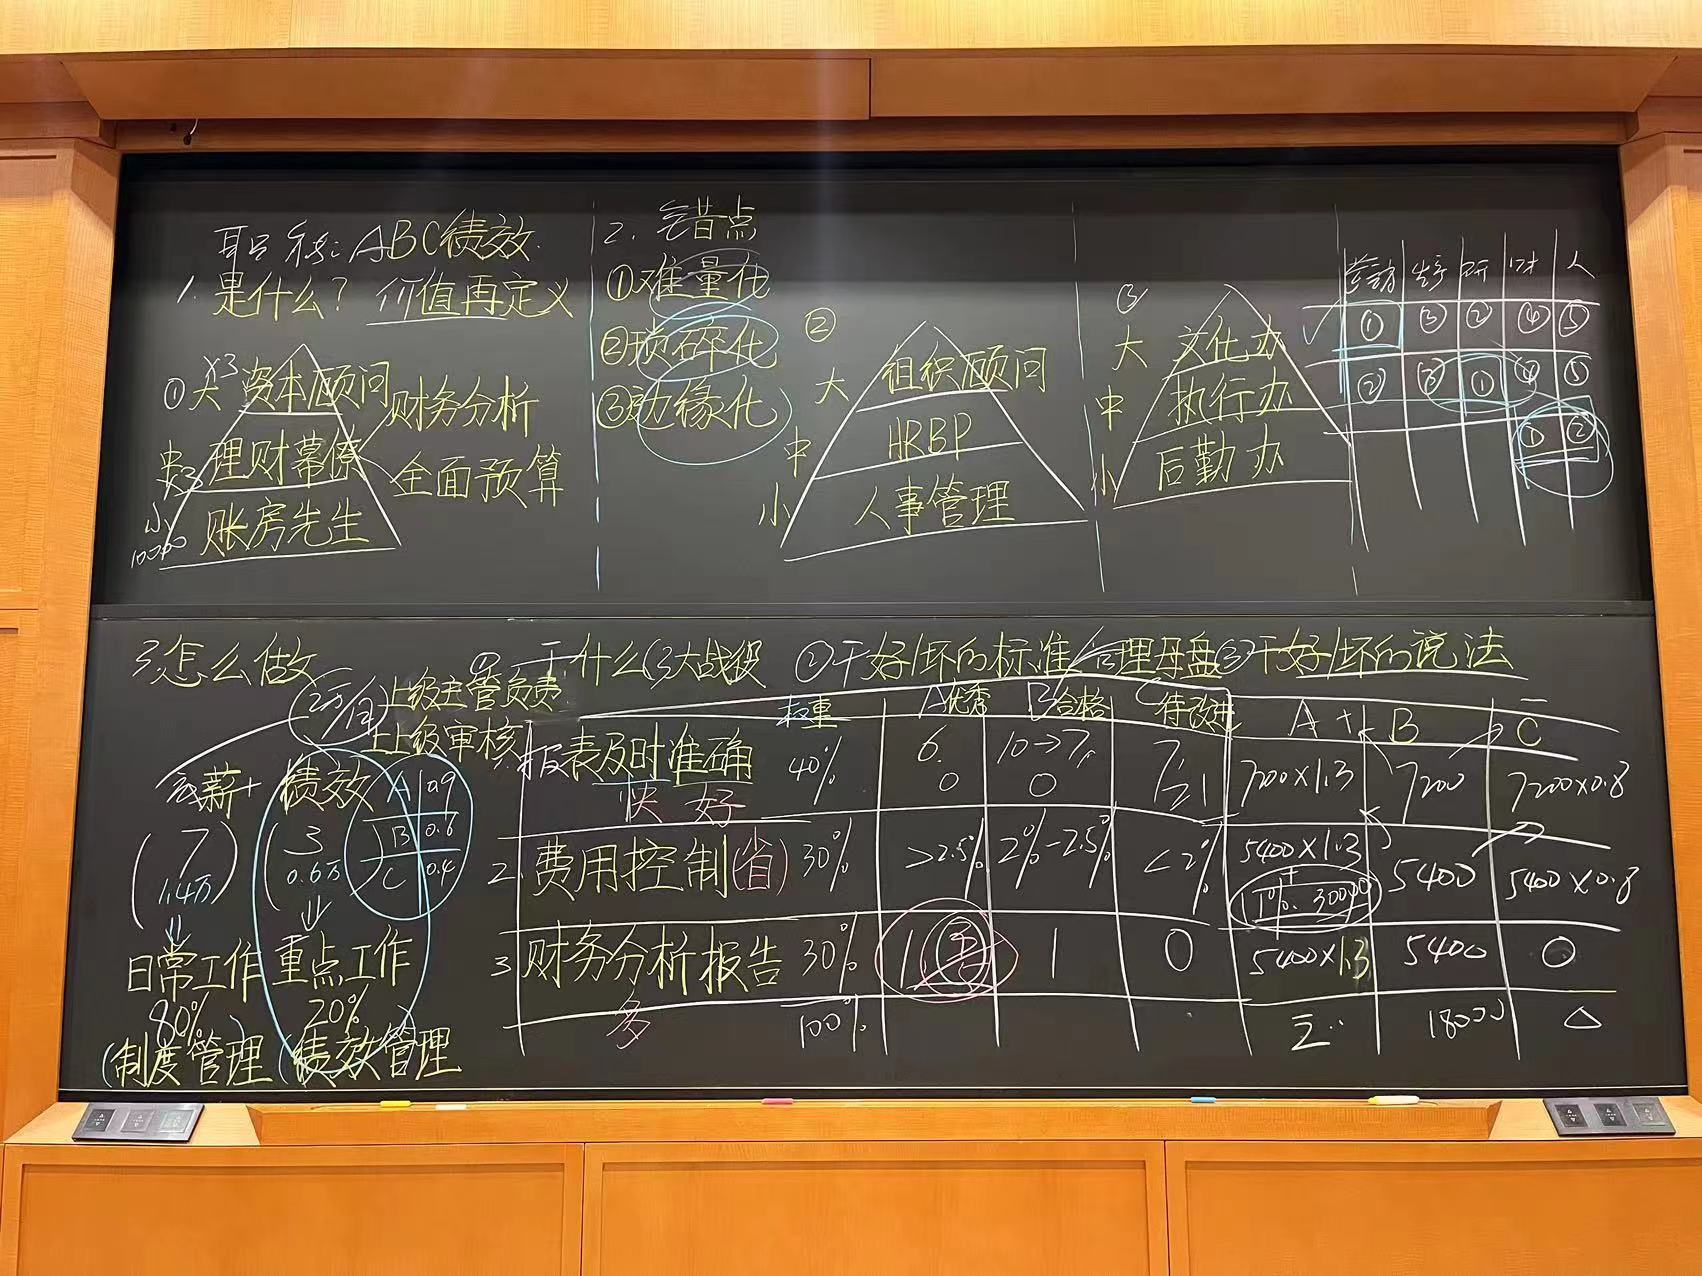 职称: ABC绩效
1. 是什么? 价值再定义
×3
①大 资本顾问 财务分析
中 ×3 理财幕僚 全面预算
小 10000 账房先生
2. 错点
①难量化
②琐碎化
③边缘化
②
大 组织顾问
中 HRBP
小 人事管理
③
大 文化办
中 执行办
小 后勤办
研 财 人
✓ ① ③ ② ④ ⑤
② ③ ① ④ ⑤
① ②
3.怎么做 ①干什么(3大战役 ②干好/坏的标准 管理母盘 ③干好/坏的说法
2万/月 上级主管负责
上上级审核
底薪+ 绩效
(7) (3)
1.4万 0.6万
A 0.9
B 0.6
C 0.4
日常工作 重点工作
80% 20%
(制度管理) (绩效管理)
权重 A优秀 B合格 C待改进 A+ B C-
报表及时准确 40% 6. 10→7. 7.
快 好 0 0 ≥1 7200×1.3 7200 7200×0.8
2. 费用控制(省) 30% >2.5% 2%-2.5% <2% 5400×1.3 5400 5400×0.8
+
1% 30000
3. 财务分析报告 30% 1 1 0 5400×1.3 5400 0
多 100% Σ.. 18000 △